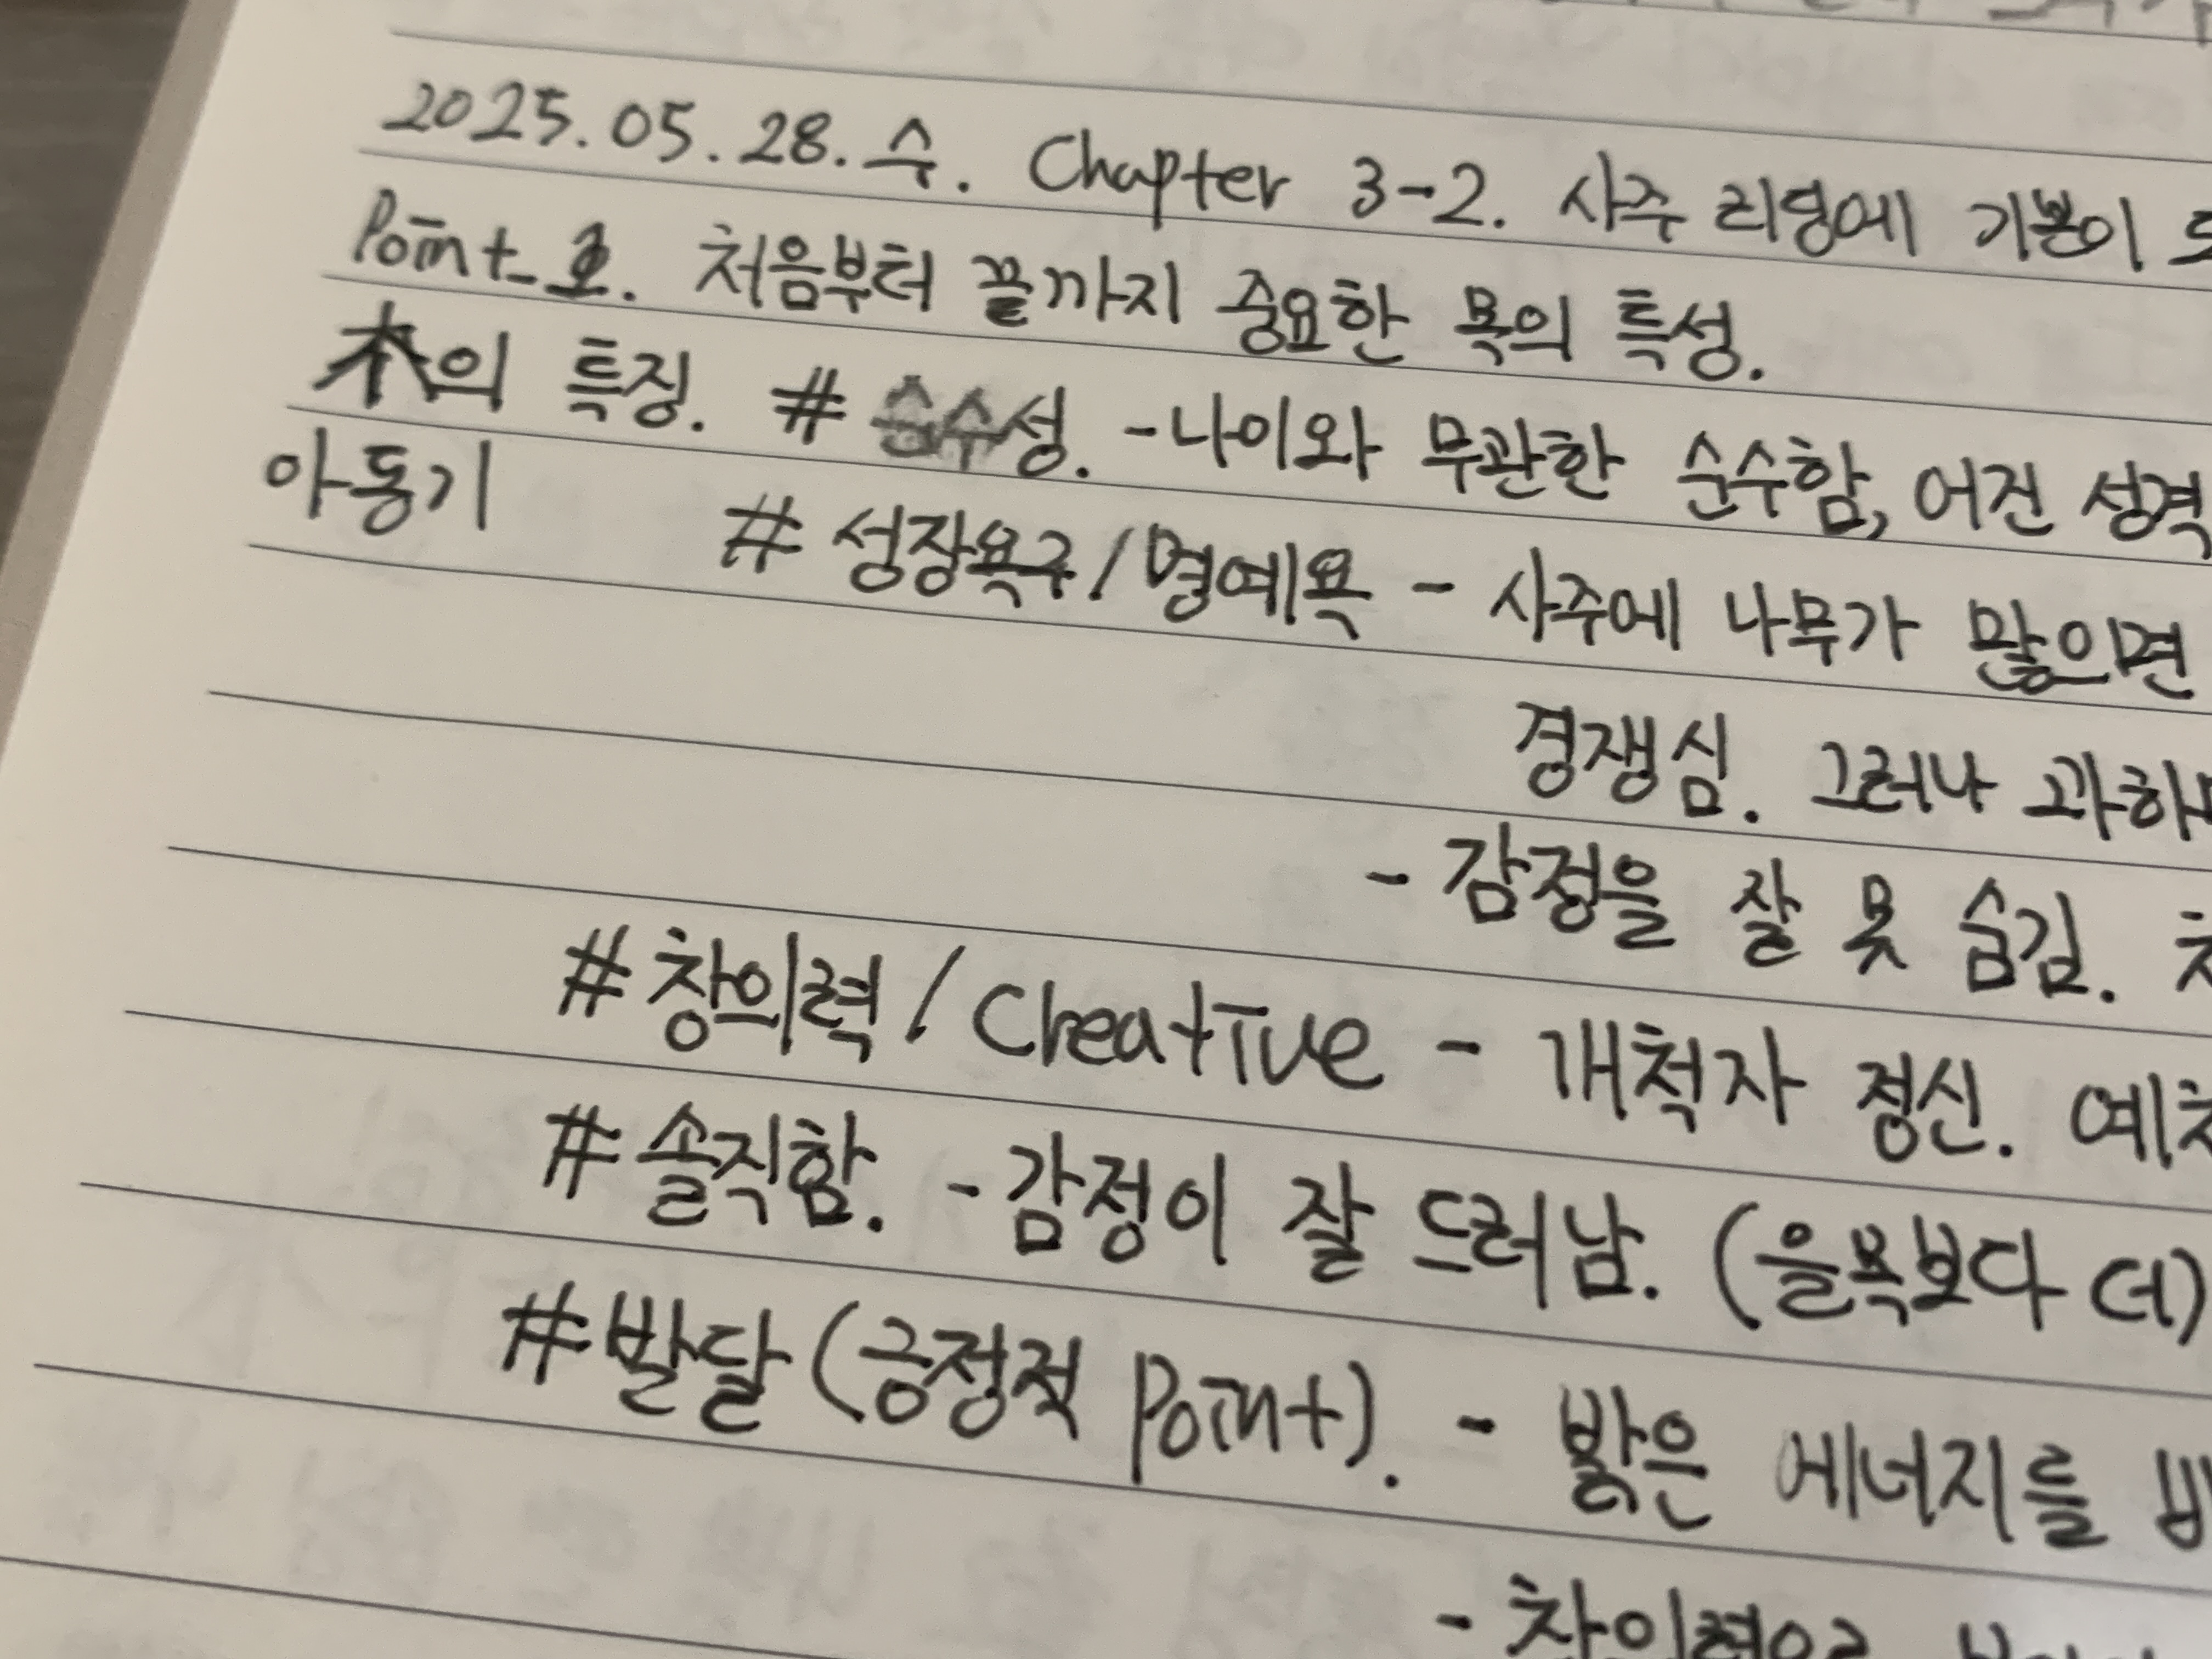 2025.05.28.수. Chapter 3-2. 사주 리딩에 기본이
Point_1. 처음부터 끝까지 중요한 목의 특성.
木의 특징. # 순수성. - 나이와 무관한 순수함, 어진 성격
아동기 # 성장욕구/명예욕 - 사주에 나무가 많으면
경쟁심. 그러나 과하
- 감정을 잘 못 숨김.
# 창의력 / Creative - 개척자 정신.
# 솔직함. - 감정이 잘 드러남. (을목보다 더)
# 발달 (긍정적 Point). - 밝은 에너지를
- 창의력으로